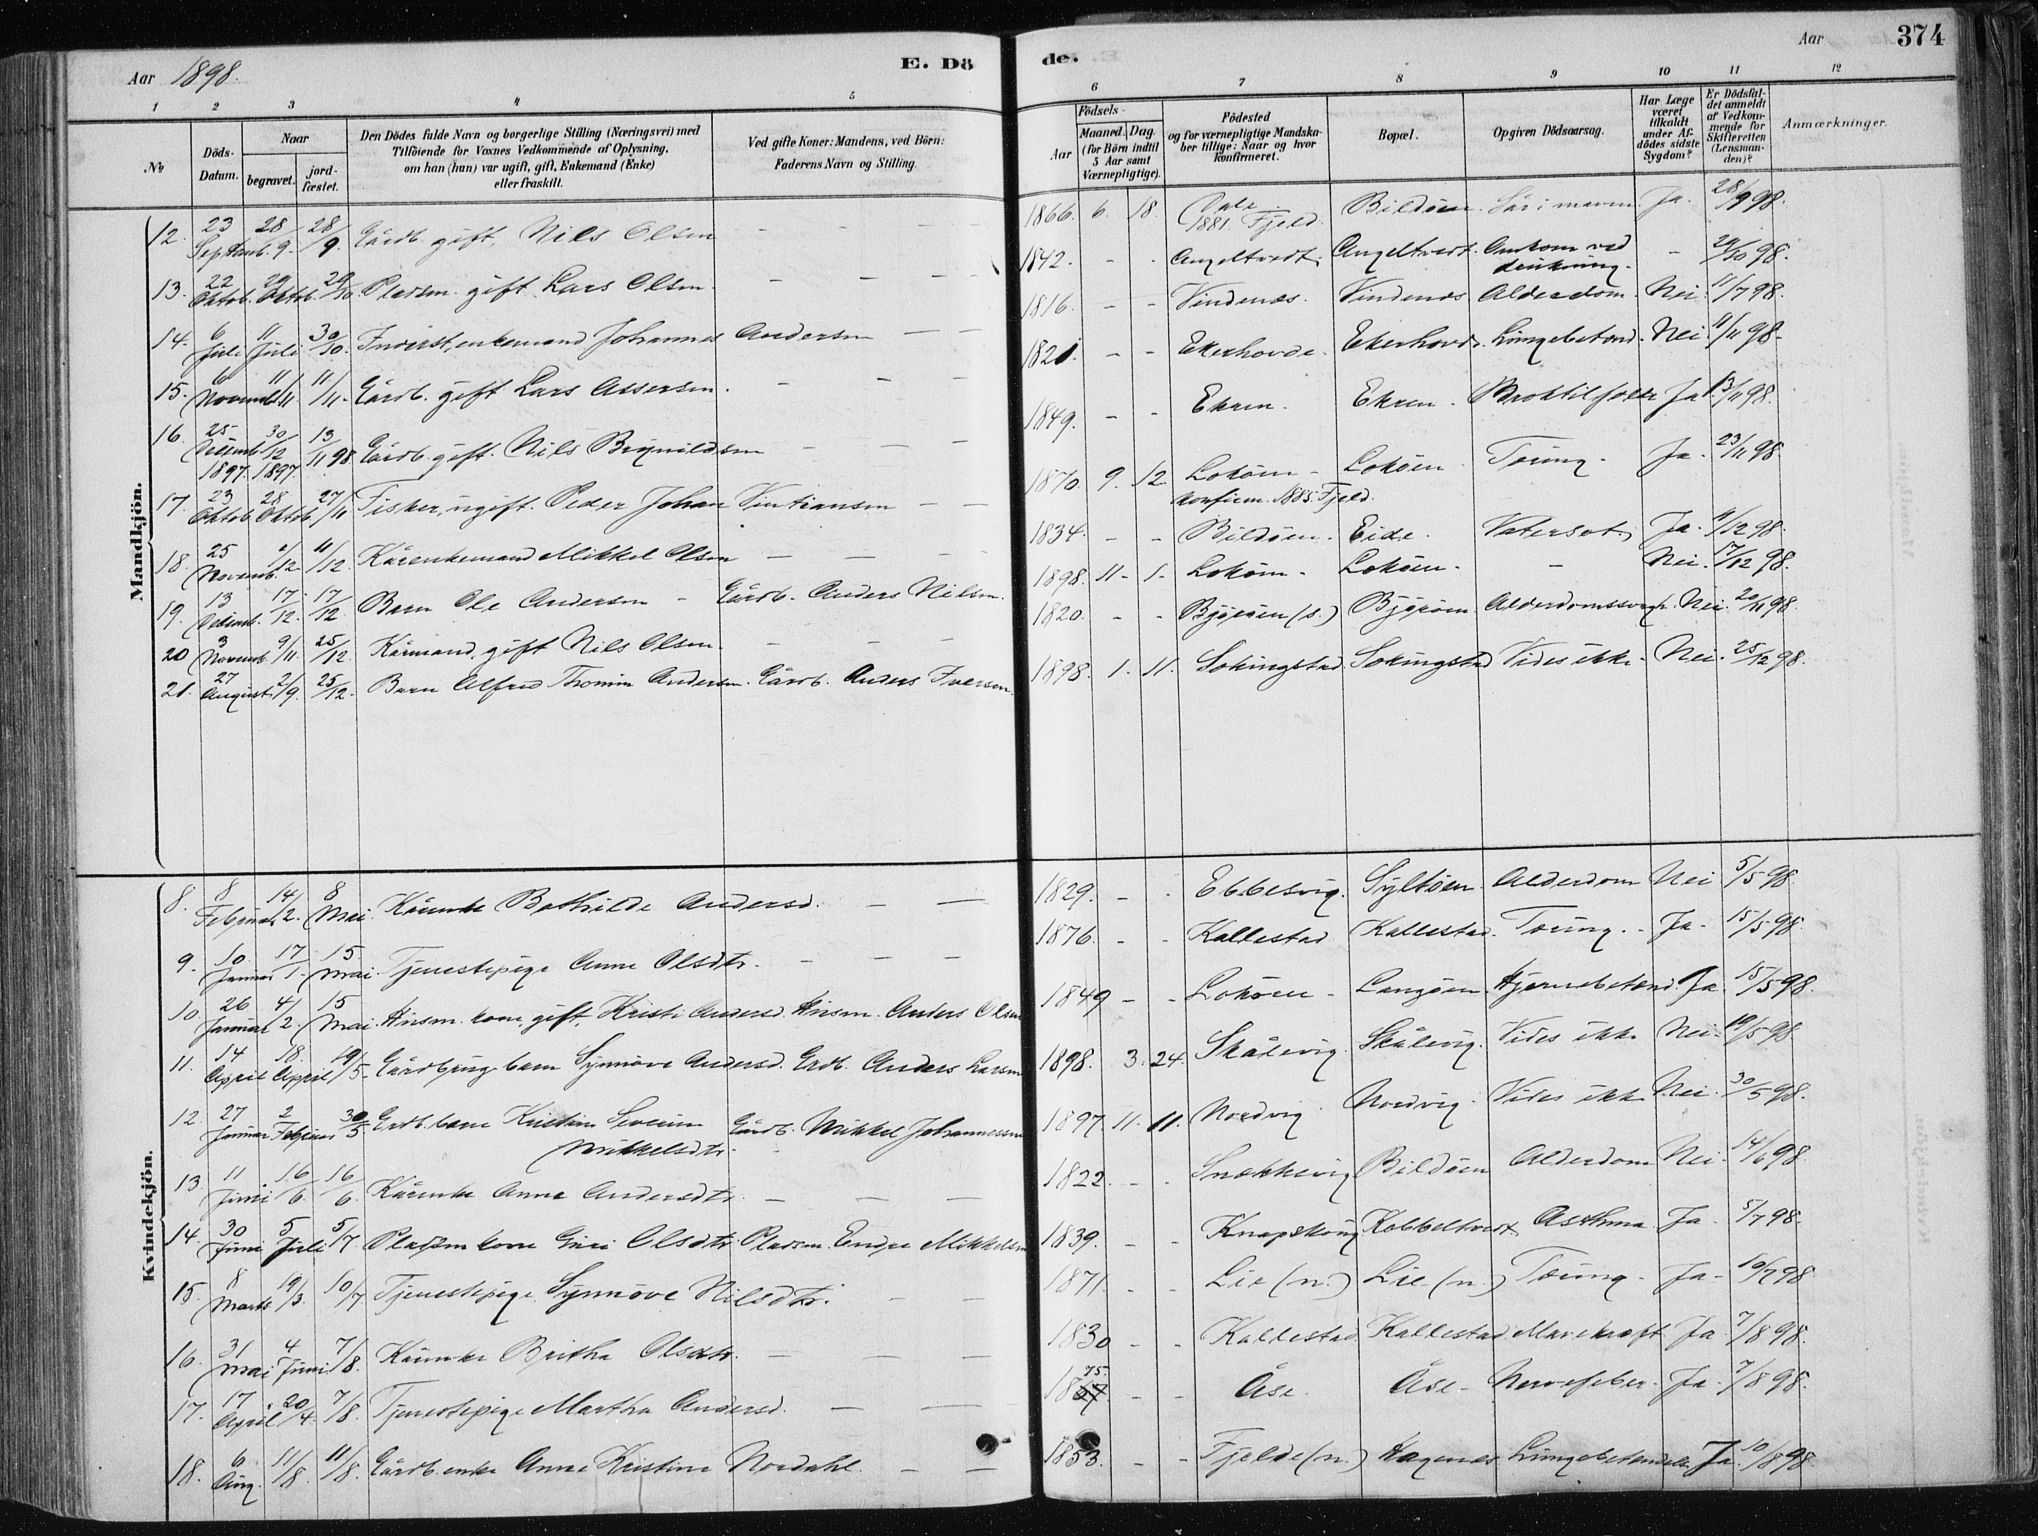 Aar 1898.
E. Dö
1 2 3 4 5
No
Döds-Datum.
Naar
begravet.
jord-fæstet.
Den Dödes fulde Navn og borgerlige Stilling (Næringsvei) med
Tilföiende for Voxnes Vedkommende af Oplysning,
om han (hun) var ugift, gift, Enkemand (Enke)
eller fraskilt.
Ved gifte Koner: Mandens, ved Börn:
Faderens Navn og Stilling.
Mandkjön.
12. 23 Septemb. 28/9. 28/9. Gårdb. gift, Nils Olsen — — —
13. 22 Oktob. 29 Oktob. 29/10 Pladsm. gift Lars Olsen — — —
14. 6 Juli 11 Juli 30/10. Inderst, enkemand Johannes Andersen — —
15. 6 Novemb. 11/11. 11/11. Gårdb. gift Lars Assersen. — — —
16. 25 Decemb. 1897. 30/12 1897. 13/11 98. Gårdb. gift. Nils Brynildsen — — —
17. 23 Oktob. 28 Oktob. 27/11 Fisker, ugift. Peder Johan — —
18. 25 Novemb. 2/12. 11/12. Kårenkemand Mikkel Olsen — — —
19. 13 Decemb. 17/12. 17/12 Barn Ole Andersen — Gårdb. Anders Nilsen.
20 3 Novemb. 9/11. 25/12. Kårmand, gift Nils Olsen. — — —
21. 27 August 2/9. 25/12. Barn Alfred Andersen. Gårdb. Anders Iversen.
Kvindekjön.
8. 8 Februar 14/2. 8 Mai Kårenke Bothilde Andersd. — —
9. 10. Januar 17/1. 15 Mai. Tjenestepige Anne Olsdtr. — — —
10. 26 Januar 4/2. 15 Mai. Husm. kone, gift, Kristi Andersd. Husm. Anders Olsen
11. 14 April 18. April 19/5. Gårdbrug. barn Synnöve Andersd. Grdb. Anders Larsen
12. 27 Januar 2 Februar 30/5 Grdb. barn Kristine Severine Gårdb. Mikkel Johannessen
Mikkelsdtr.
13. 11 Juni 16/6. 16/6. Kårenke Anna Andersdtr. — — —
14. 30 Juni 5 Juli 5/7. Pladsm kone Guri Olsdtr Pladsm. Endre Mikkelsen
15. 8 Marts 19/3. 10/7 Tjenestepige Synnöve Nilsdtr. — —
16. 31 Mai 4 Juni 7/8. Kårenke Britha Olsdtr. — — —
17. 17 April 20/4. 7/8. Tjenestepige Martha Andersd. — — —
18. 6 Aug. 11/8. 11/8. Gårdb. enke Anne Kristine Nordahl. — —
de.
Aar
374
6 7 8 9 10 11 12
Födsels-
Aar
Maaned. Dag.
(for Börn indtil
5 Aar samt
Værnepligtige).
Födested
og for værnepligtige Mandska-
ber tillige: Naar og hvor
konfirmeret.
Bopæl.
Opgiven Dödsaarsag.
Har Læge
været
tilkaldt
under Af-
dödes sidste
Sygdom?
Er Dödsfal-
det anmeldt
af Vedkom-
mende for
Skifteretten
(Lensman-
den)?
Anmærkninger.
1866. 6. 18. Dale. 1881. Fjeld. Bildöen. Sår i maven. Ja. 28/9 98.
1842. - - Angeltvedt. Angeltvedt. Omkom ved
drukning. — 29/10 98.
1816. - - Vindenæs. Vindenæs Alderdom. Nei. 11/7 98.
1821. - - Ekerhovde. Ekerhovde. Lungebetænd. Nei 11/11 98.
1849. - - Ekren. Ekren. Ja. 13/11 98.
1870. 9. 12 Loköen. Loköen. Tæring. Ja. 23/11 98.
Konfirm. 1885. Fjeld.
1834. - - Bildöen. Eide. Vatersot. Ja. 11/12 98.
1898. 11. 1. Loköen. Loköen. — Nei. 17/12 98.
1820. - - Björöen (s.) Björöen. Nei. 20/11 98.
1898. 1. 11. Sekingstad Sekingstad Vides ikke. Nei. 25/12 98.
1829. - - Ebbesvig. Syltöen. Alderdom Nei 5/5 98.
1876. - - Kallestad Kallestad. Tæring. Ja. 15/5 98.
1849 - - Loköen. Langöen. Hjernebetænd. Ja. 15/5 98.
1898. 3. 24. Skålevig. Skålevig. Vides ikke Nei. 19/5 98.
1897. 11. 11. Nordvig. Nordvig. Vides ikke Nei. 30/5 98.
1822. - - Snekkevig Bildöen Alderdom Nei. 14/6 98.
1839. - - Knapskoug Kobbeltvedt Asthma. Ja. 5/7 98.
1871. - - Lie (n.) Lie (n.) Tæring. Ja. 10/7 98.
1830 - - Kallestad Kallestad Mavekræft Ja. 7/8 98.
1875. - - Åse. Åse. Nervefeber. Ja. 7/8 98.
1853. - - Fjelde (n.) Hagenes Lungebetændelse Ja. 10/8 98.